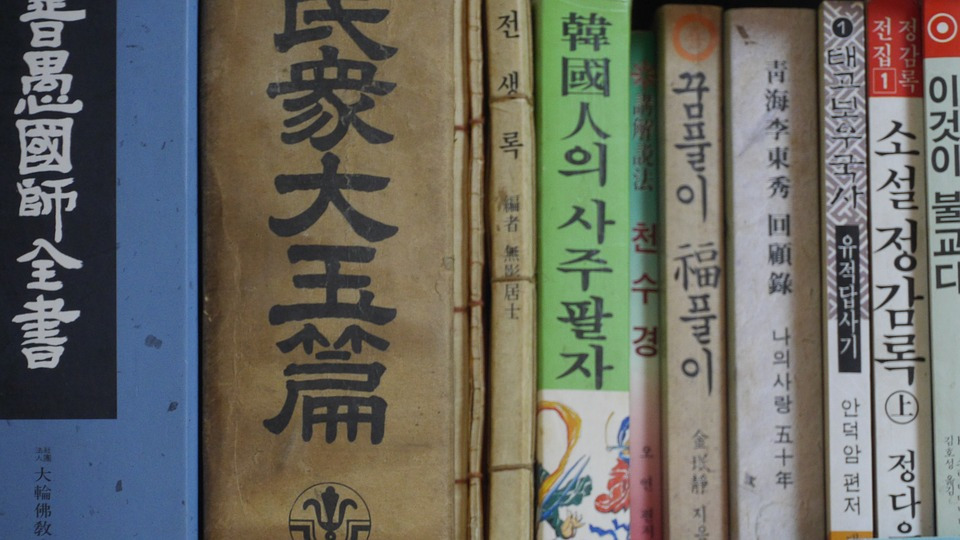 普愚國師全書
社團
法人
大輪佛敎
民衆大玉篇
전생록
編者 無影居士
韓國人의 사주팔자
講解說法
천수경
꿈풀이 福풀이
지음
靑海李東秀 回顧錄
나의 사랑 五十年
1
태고보우국사
유적답사기
안덕암 편저
정감록
전집 1
소설 정감록 上
정다운
이것이 불교다